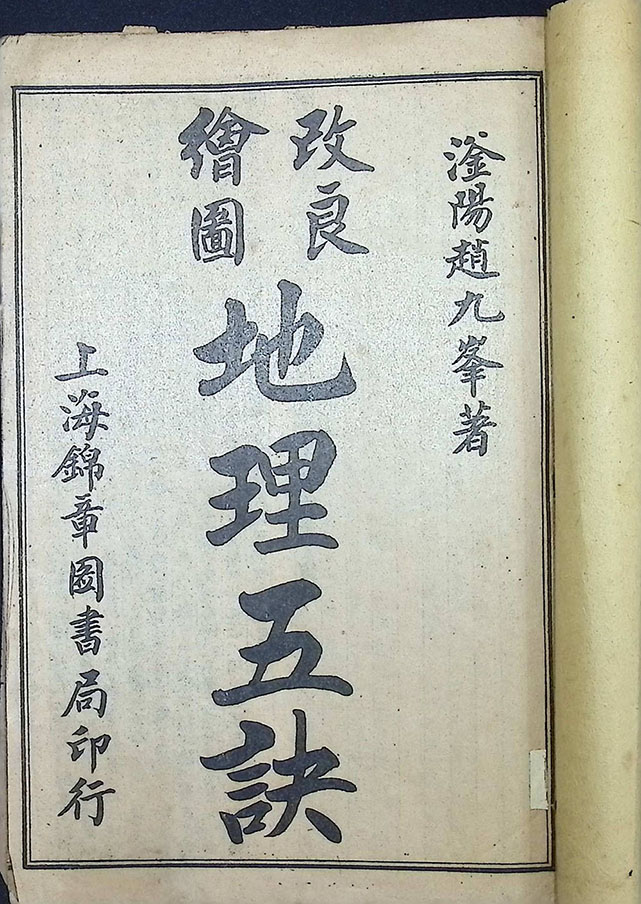 滏陽趙九峯著
改良
繪圖
地理五訣
上海錦章圖書局印行